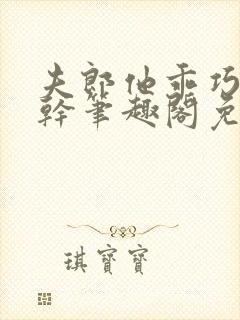 夫郎他乖巧
幹筆趣閣免
琪寶寶